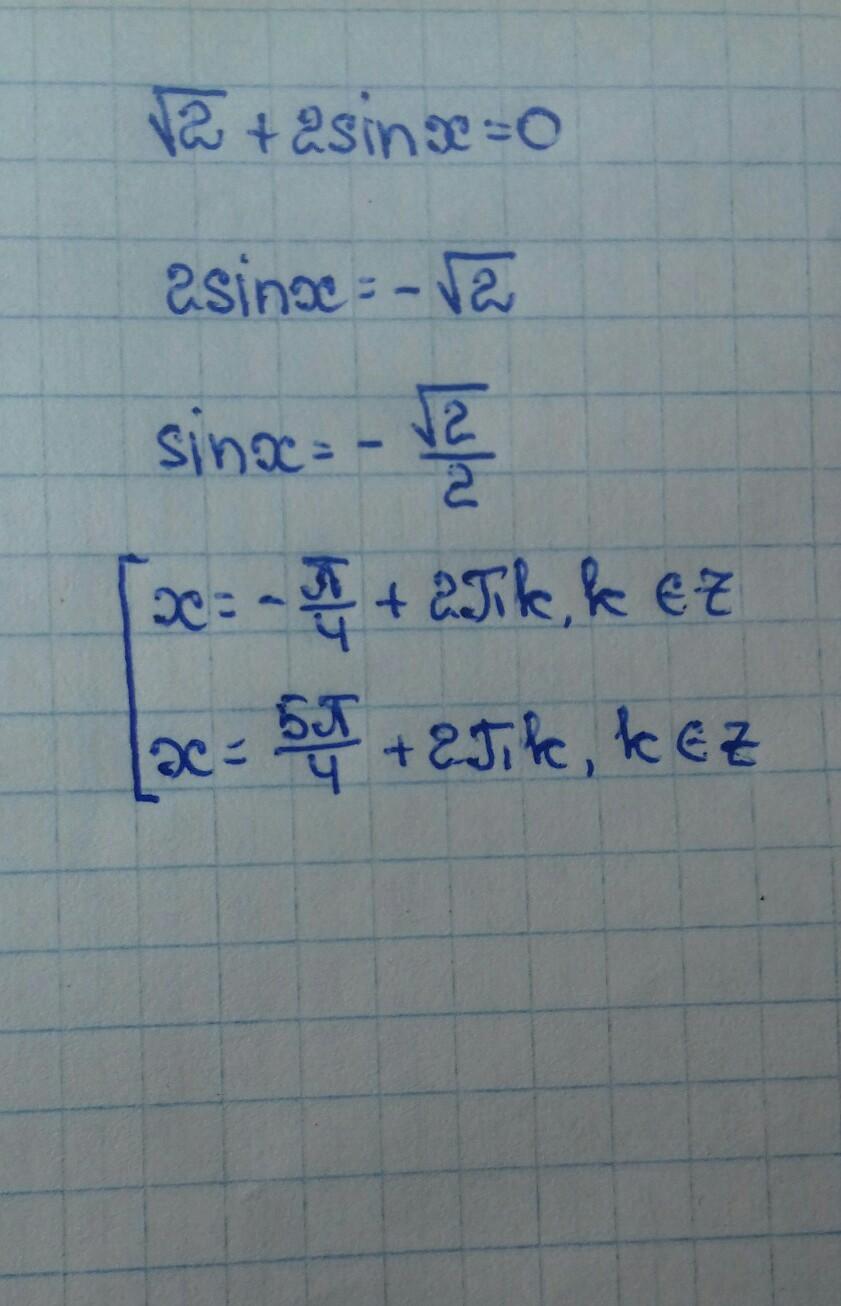 √2 + 2sinx = 0
2sinx = - √2
sinx = - √2/2
x = - π/4 + 2πk, k ∈ z
x = 5π/4 + 2πk, k ∈ z